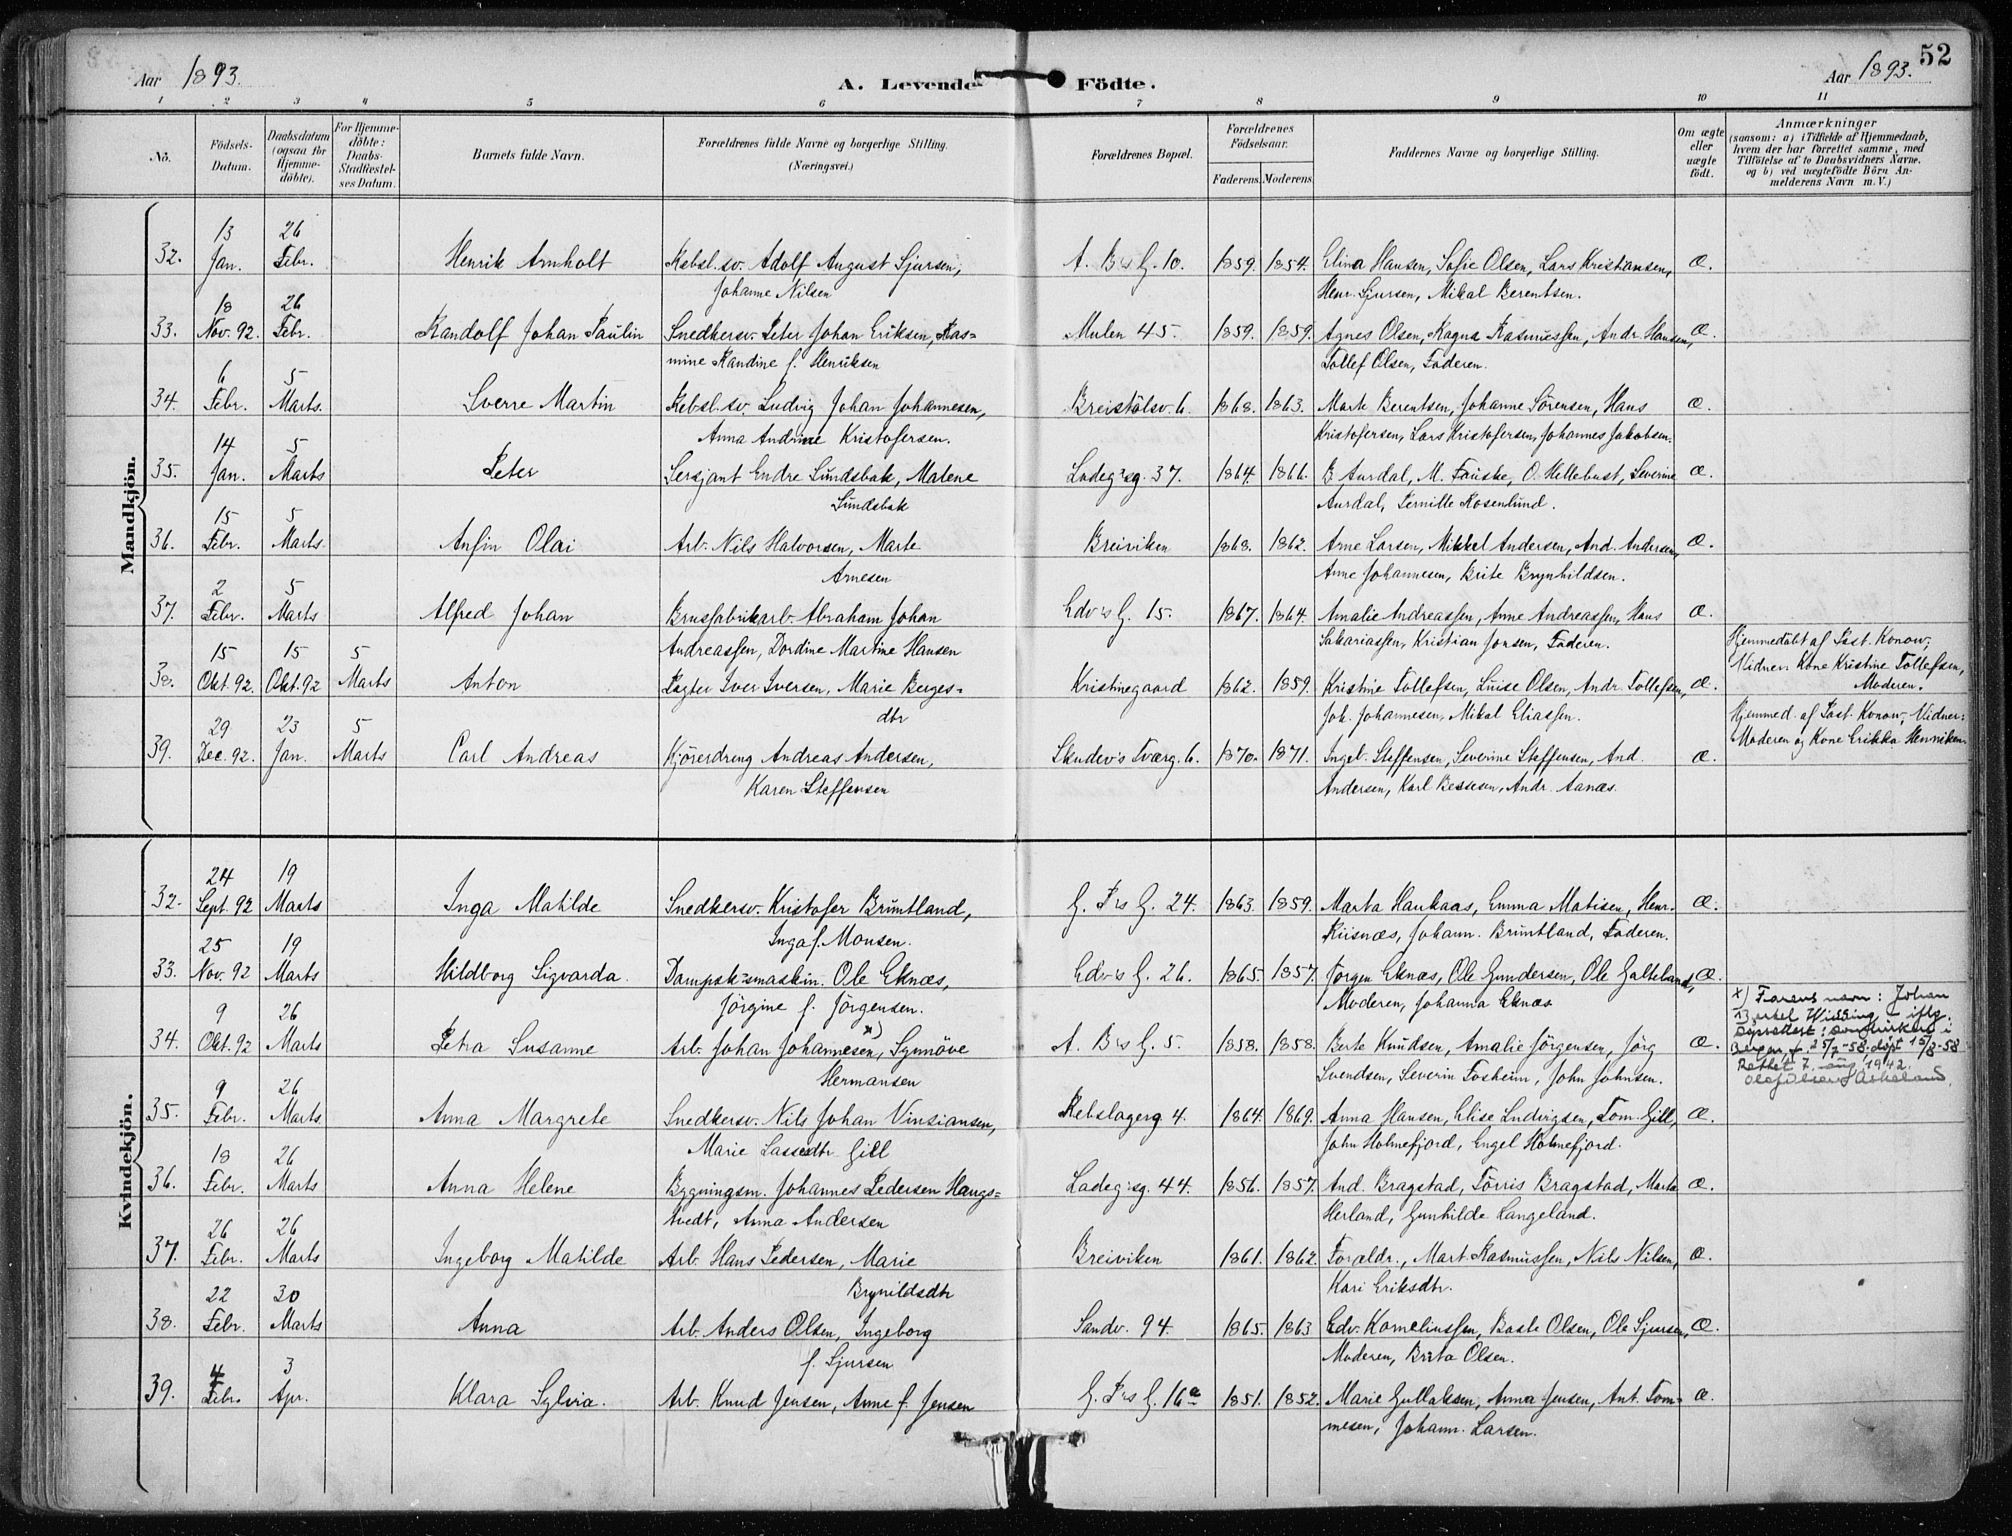 52
Aar 1893.
A. Levende Födte.
Aar 1893.
1 2 3 4 5 6 7 8 9 10 11
No. Födsels-Datum. Daabsdatum (ogsaa for Hjemme-döbte). For Hjemme-döbte: Daabs-Stadfæstel-ses Datum. Barnets fulde Navn. Forældrenes fulde Navne og borgerlige Stilling. (Næringsvei.) Forældrenes Bopæl. Forældrenes Födselsaar. Faderens. Moderens. Faddernes Navne og borgerlige Stilling. Om ægte eller uægte födt. Anmærkninger (saasom: a) i Tilfælde af Hjemmedaab, hvem der har forrettet samme, med Tilföielse af to Daabsvidners Navne. og b) ved uægtefödte Börn An-melderens Navn m. V.)
Mandkjön.
13 26
32. Jan. Febr. Henrik Arnholt Rebsl.sv. Adolf August Sjursen, A. B's G. 10. 1859. 1854. Elina Hansen, Sofie Olsen, Lars Kristiansen, Æ.
Johanne Nilsen Henr. Sjursen, Mikal Berentsen.
18 26
33. Nov. 92. Febr. Randolf Johan Paulin Snedkersv. Peter Johan Eriksen, Ras= Mulen 45. 1859. 1859. Agnes Olsen, Ragna Rasmussen, Andr. Hansen, Æ.
mine Randine f. Henriksen Tollef Olsen, Faderen.
6 5
34. Febr. Marts. Sverre Martin Rebsl.sv. Ludvig Johan Johannesen, Breistölsv. 6. 1868. 1863. Marte Berentsen, Johanne Sörensen, Hans Æ.
Anna Andrine Kristofersen. Kristofersen, Lars Kristofersen, Johannes Jakobsen.
14 5
35. Jan. Marts Peter Sersjant Endre Sundsbak, Malene Ladeg.sg. 37. 1864. 1866. B. Aurdal, M. Fauske, O. Hellebust, Severine Æ.
Sundsbak Aurdal, Pernille Rosenlund.
15 5
36. Febr. Marts. Anfin Olai Arb. Nils Halvorsen, Marte Breiviken 1868. 1862. Arne Larsen, Mikkel Andersen, And. Andersen, Æ.
Arnesen Anne Johannesen, Brite Brynhildsen.
2 5
37. Febr. Marts Alfred Johan Brusfabrikarb. Abraham Johan Edv's G. 15. 1867. 1864. Amalie Andreassen, Anne Andreassen, Hans Æ.
Andreassen, Dordine Martine Hansen Sakariassen, Kristian Jonsen, Faderen.
15 15 5 Hjemmedöbt af Past. Konow;
38. Okt. 92. Okt. 92 Marts Anton Pagter Iver Iversen, Marie Berges= Kristinegaard 1862. 1859. Kristine Tollefsen, Luise Olsen, Andr. Tollefsen, Æ. Vidner: Kone Kristine Tollefsen, Moderen.
dtr Joh. Johannesen, Mikal Eliassen.
29 23 5 Hjemmed. af Past. Konow; Vidner:
39. Dec. 92. Jan. Marts Carl Andreas Kjörerdreng Andreas Andersen, Skudev's Tværg. 6. 1870. 1871. Ingeb. Steffensen, Severine Steffensen, And. Æ. Moderen og Kone Erikka Henriksen
Karen Steffensen Andersen, Karl Bessesen, Andr. Aanæs.
Kvindekjön.
24 19
32. Sept. 92 Marts Inga Matilde Snedkersv. Kristofer Bruntland, G. P's G. 24. 1863. 1859. Marta Haukaas, Emma Matisen, Henr. Æ.
Inga f. Monsen. Riisnæs, Johann. Bruntland, Faderen.
25 19
33. Nov. 92 Marts Hildborg Sigvarda. Dampsk=smaskin. Ole Eknæs, Edv's G. 26. 1865. 1857. Jörgen Eknæs, Ole Gundersen, Ole Galteland, Æ.
Jörgine f. Jörgensen. Moderen, Johanna Eknæs
9 26
34. Okt. 92 Marts Petra Susanne Arb. Johan Johannesen x), Synnöve A. B's G. 5. 1858. 1858. Berte Knudsen, Amalie Jörgensen, Jörg Æ.
Hermansen Svendsen, Severin Fosheim, John Johnsen.
x) Farens navn: Johan
Bertel Wissing - iflg.
dåpsattest: domkirken i
Bergen, f. 25/7-58, döpt 15/8-58
Rettet 7. aug. 1942.
Olaf Olsen Askeland.
9 26
35. Febr. Marts. Anna Margrete Snedkersv. Nils Johan Vinsiansen, Rebslagerg 4. 1864. 1869. Anna Hansen, Elise Ludvigsen, Tom. Gill, Æ.
Marie Lassesdtr Gill John Holmefjord, Engel Holmefjord.
18 26
36. Febr. Marts Anna Helene Bygningsm. Johannes Pedersen Haugs= Ladeg.sg. 44. 1856. 1857. And. Bragstad, Törris Bragstad, Marta Æ.
tvedt, Anna Andersen Herland, Gunhilde Langeland.
26 26
37. Febr. Marts Ingeborg Matilde Arb. Hans Pedersen, Marie Breiviken 1861. 1862. Forældr., Mart. Rasmussen, Nils Nilsen, Æ.
Brynildsdtr Kari Eriksdtr.
22 30
38. Febr. Marts Anna Arb. Anders Olsen, Ingeborg Sandv. 94. 1865. 1863 Edv. Korneliussen, Baste Olsen, Ole Sjursen, Æ.
f. Sjursen Moderen, Brita Olsen.
4 3
39. Febr. Apr. Klara Sylvia. Arb. Knud Jensen, Anne f. Jensen G. P's G. 16a 1851. 1852. Marie Gullaksen, Anna Jensen, Ant. Tom= Æ.
mesen, Johann. Larsen.